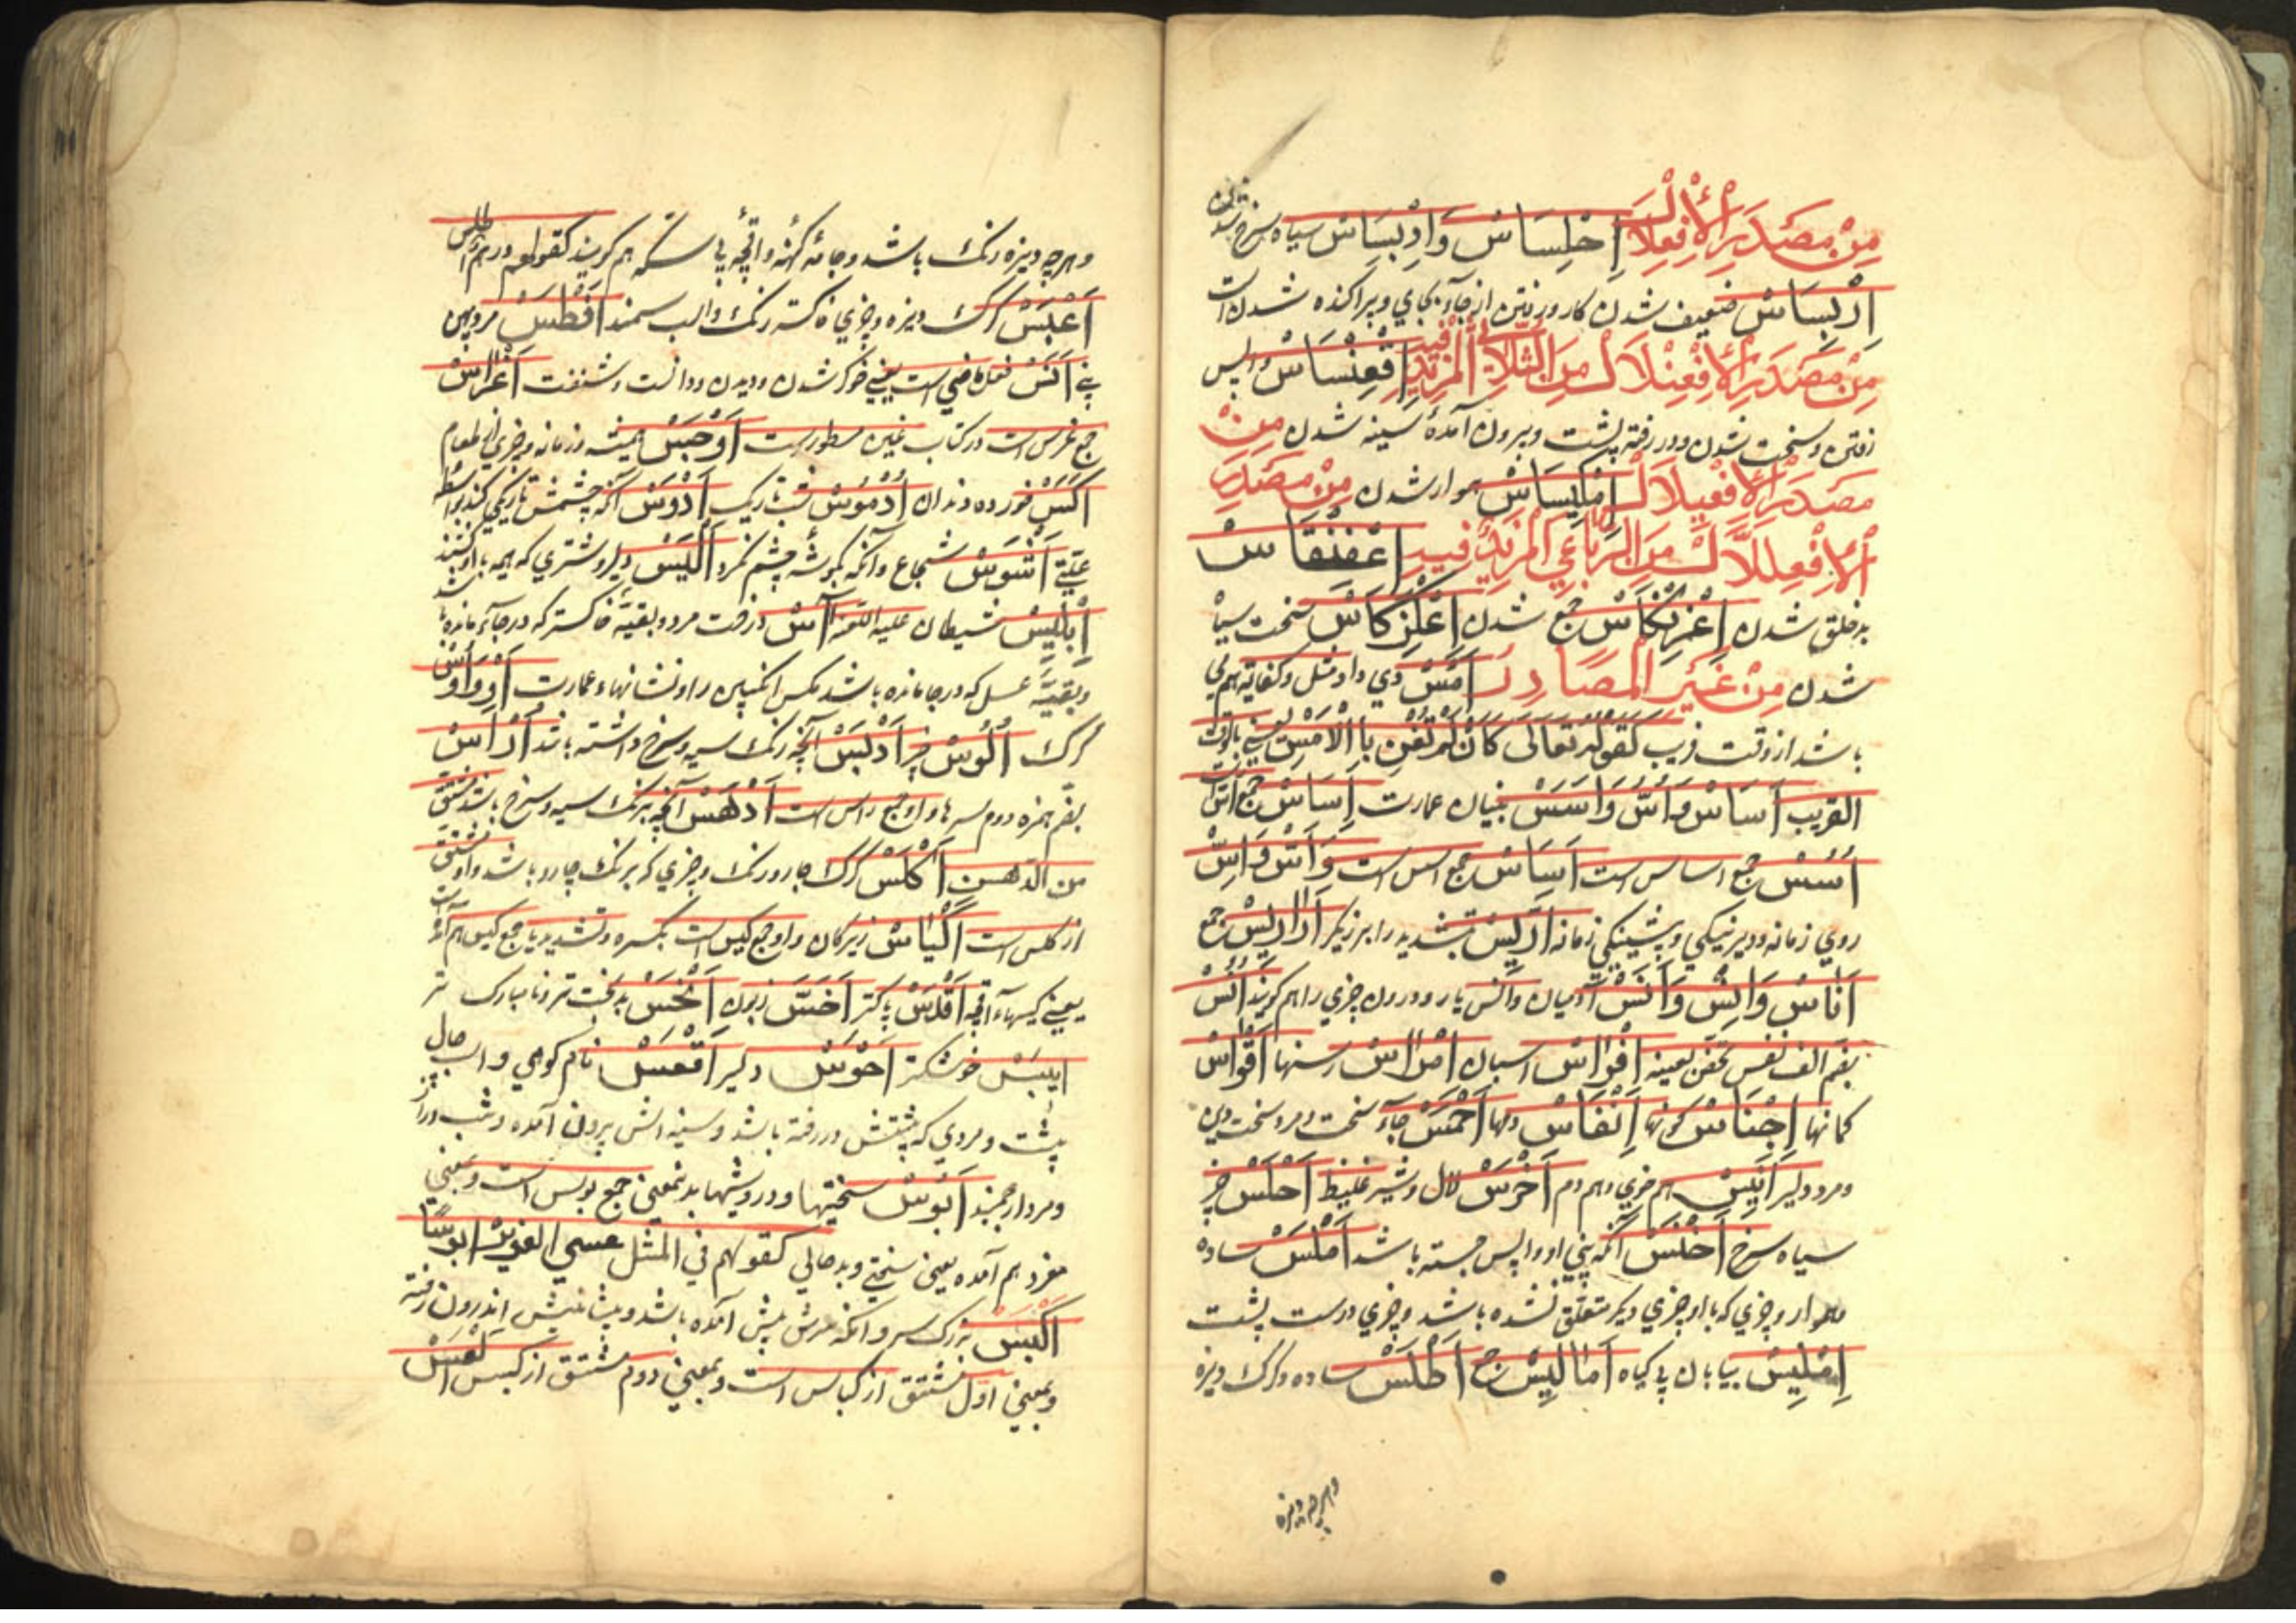 مِنْ مَصْدَرِ الْإِفْعِلَالِ اِحْلِسَاسْ وَاِدْبِسَاسْ سیاه سرخ شدن
اِرْبِسَاسْ ضعیف شدن کار و رفتن از جاۓ بجاي و پراکنده شدن است
مِنْ مَصْدَرِ الْإِفْعِنْلَالْ مِنَ الثُّلَاثِي الْمَزِيْدِ فِيهِ اِقْعِنْسَاسْ واپس
رفتن و سخت شدن و در رفته پشت و بیرون آمدهٔ سینه شدن مِنْ
مَصْدَرِ الْإِفْعِيلَالْ اِمْلِيسَاسْ هموار شدن مِنْ مَصْدَرِ
الْإِفْعِلَّالْ مِنَ الرُّبَاعِي الْمَزِيْدِ فِيهِ اِعْفِنْقَاسْ
بدخلق شدن اِعْرِنْكَاسْ جمع شدن اِعْلِنْكَاسْ سخت سیاه
شدن مِنْ غَيْرِ الْمَصَادِرِ اَمْسْ دي
باشد از وقت قریب كَقَوْلِهِ تَعَالَى كَاَنْ لَمْ تَغْنَ بِالْاَمْسِ یعنی بالوقت
القریب اَسَاسْ وَاُسّْ وَاَسَسْ بنیان عمارت اِسَاسْ جمع اُسّْ است
اُسُسْ جمع اساس است اَسَاسْ جمع اسس است وَاَسّْ وَاِسّْ
روي زمانه و دیرنیکي و پیشینکي زمانه اِدْرِيسْ بتشدید را ابریزنکر اَدَارِيسْ جمع
اُنَاسْ وَاِنْسْ وَاَنَسْ آدمیان و انس یار و درون چیزي را هم کویند اُنُسْ
بضم الف نفس بعینه اَفْرَاسْ اسبان اَمْرَاسْ رسنها اَقْوَاسْ
کمانها اَجْنَاسْ کونها اَنْفَاسْ دمها اَحْمَسْ جاۓ سخت و مرد سخت دین
و مرد دلیر اَنِيسْ هم خوي و هم دم اَخْرَسْ لال و شیر غلیظ اَحْلَسْ چیز
سیاه سرخ اَخْنَسْ آنکه بیني او واپس جسته باشد اَمْلَسْ ساده
هموار و چیزي که با او چیزي دیکر متعلق نشده باشد و چیزي درست پشت
اِمْلِيسْ بیابان بي کیاه اَمَالِيسْ ج اَطْلَسْ ساده و کرك دیزه
وهرچه دیزه
وهرچه دیزه رنك باشد و جامهٔ کهنه و اقچهٔ بي سکه هم کویند کقولهم درهم اطلس
اَغْبَسْ کرك دیزه و چیزي خاکستر رنك و اسب سمند اَفْطَسْ مرد پهن
بیني اَنَسْ فعل ماضي است یعني خوکر شدن و دیدن و دانست و شنفت اَغْرَاسْ
جمع غرس است در کتاب غین مسطور است اَوْجَسْ همیشه و زمانه و چیزي از طعام
اَكَسّْ خورده دندان اُدْمُوسْ شب تاریك اَدْوَسْ آنکه چشمش تاریکي کند بواسطهٔ
علتي اَشْوَسْ شجاع و آنکه بکوشهٔ چشم نکرد اَلْيَسْ دلیر و شتري که همه با او کنند
اِبْلِيسْ شیطان علیه اللعنة آسْ درخت مرد و بقیهٔ خاکستر که در جاۓ مانده باشد
و بقیهٔ عسل که در جا مانده باشد مکس انکبین را و نشانهاء عمارت
کرك اُلُوسْ چیز اَدْبَسْ آنچه رنك سیه و سرخ داشته باشد اَرْاُسْ
بضم همزه دوم سرها و او جمع راس است اَدْهَسْ آنچه برنك سیه و سرخ باشد مشتق
من الدهس اَكْلَسْ کرك چارو رنك و چیزي که برنك چارو باشد و او مشتق
از کلس است اَكْيَاسْ زیرکان و او جمع کیس است بکسره و تشدید یا جمع کیس هم آمده است
یعنی کیسهاۓ اقچه اَقْدَسْ پاکتر اَخَسّْ زبون اَنْحَسْ بدبخت تر و نامبارك تر
اَيْبَسْ خوشکتر اَحْوَسْ دلیر اَقْعَسْ نام کوهي و اسب چال
پشت و مردي که پشتش در رفته باشد و سینه اش بیرون آمده و شب دراز
و مرد ارجمند اَبْؤُسْ سختیها و درویشیها بدینمعني جمع بوس است و بمعني
مفرد هم آمده یعني سختي و بدحالي کقولهم في المثل عسى الغوير ابوسًا
اَكْبَسْ بزرك سر و آنکه سرش پیش آمده باشد و پیشانیش اندرون رفته
و بمعني اول مشتق از کباس است و بمعني دوم مشتق از کبس اَلْعَسْ